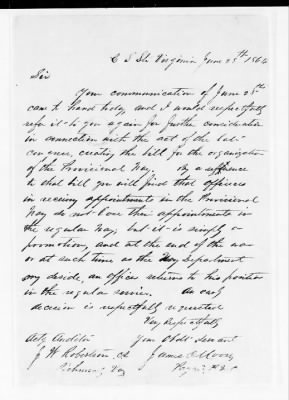 C S Str Virginia June 25th 1864
Sir
Your communication of June 25th
came to hand today, and I would respectfully
refer it to you again for further consideration
in connection with the act of the
creating the bill for the organization
of the Provisional Navy. By a reference
to that bill you will find that officers
in receiving appointments in the Provisional
Navy do not lose their appointments in
the regular Navy, but it is simply a
promotion, and at the end of the war
or at such time as the Navy Department
may decide, an officer returns to his position
in the regular service. An early
decision is respectfully requested
Very Respectfully
Actg Auditor Your Obdt Servant
J W Robertson James O Moore
Richmond Va